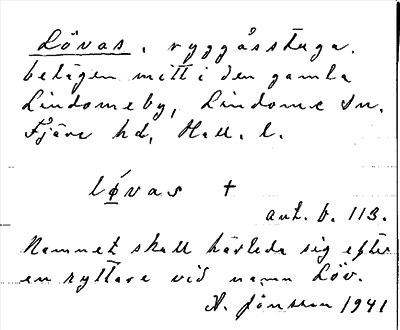 Lövas, ryggåsstuga.
belägen mitt i den gamla
Lindomeby, Lindome sn.
Fjäre hd, Hall. l.
løvas +
ant. b. 113.
Namnet skall härleda sig efter
en ryttare vid namn Löv.
A. Jönsson 1941